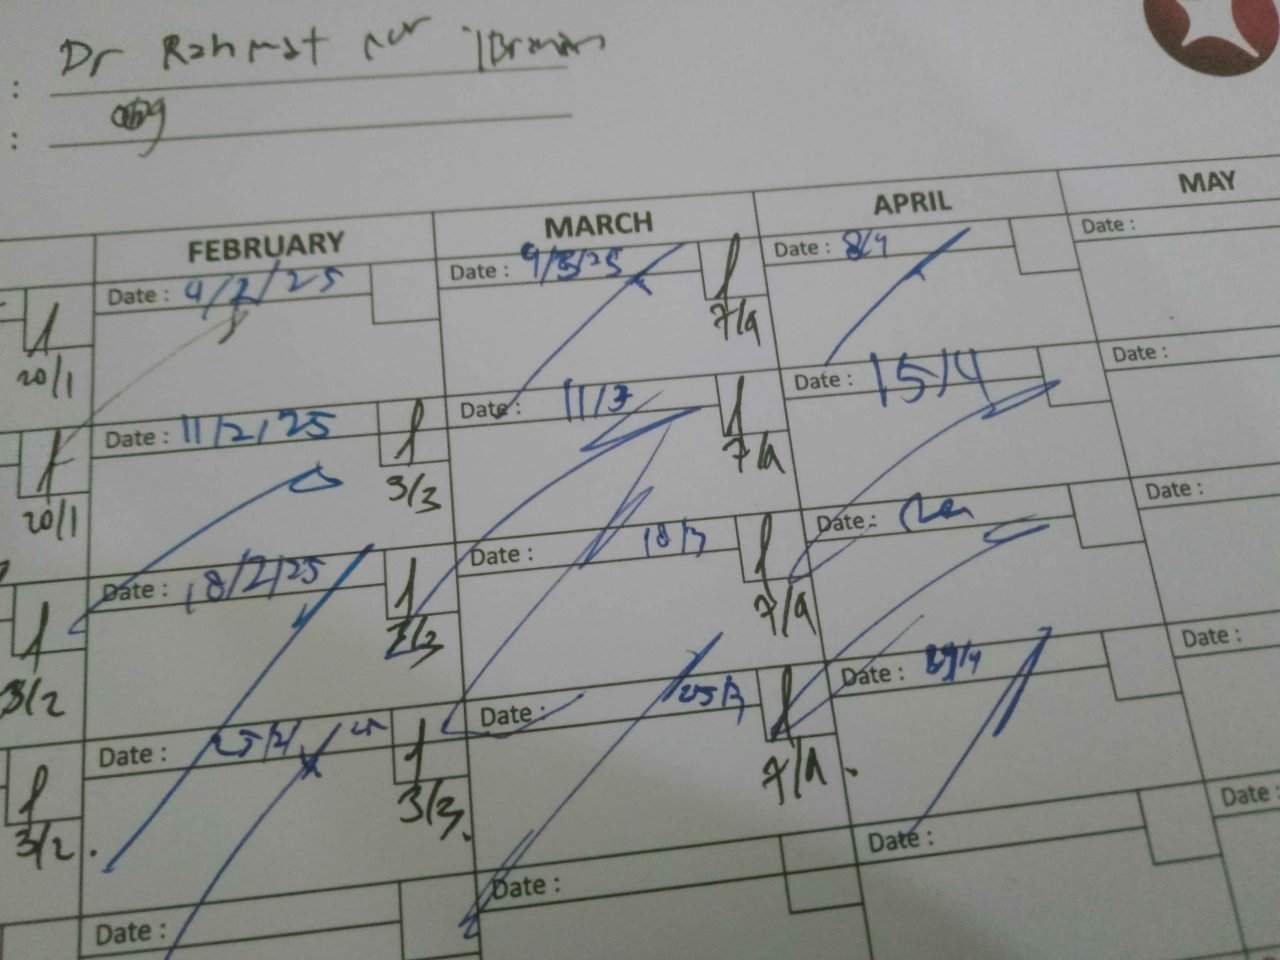 : Dr Rahmat nur
:
FEBRUARY MARCH APRIL MAY
Date : 4/2/25 Date : 4/3/25 Date : 8/4 Date :
20/1 7/4
Date : 11/2/25 Date : 11/3 Date : 15/4 Date :
20/1 3/3 7/4
Date : 18/2/25 Date : 18/3 Date : Date :
3/2 3/3 7/4
Date : 25/2/25 Date : 25/3 Date : 29/4 Date :
3/2. 3/3. 7/4.
Date : Date : Date : Date :